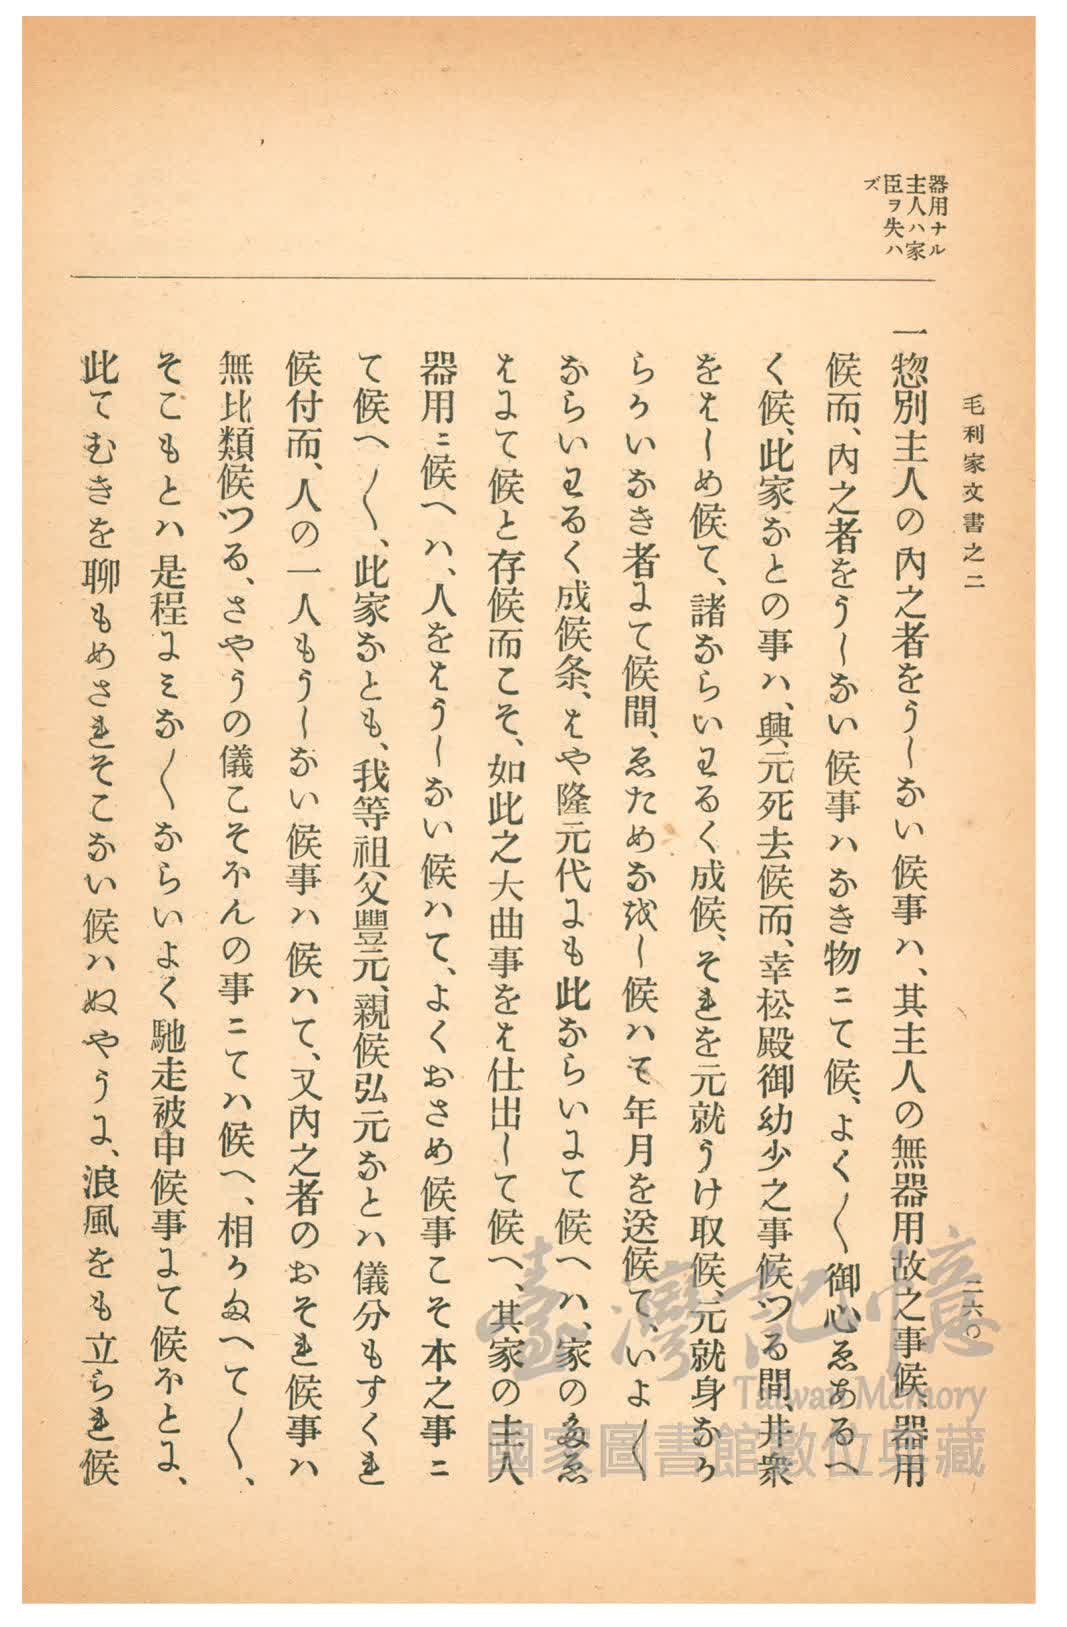 器用ナル
主人ハ家
臣ヲ失ハ
ズ
毛利家文書之二
二六〇
一惣別主人の内之者をうしない候事ハ、其主人の無器用故之事候、器用
候而、内之者をうしない候事ハなき物ニて候、よく〳〵御心ゑあるへ
く候、此家なとの事ハ、興元死去候而、幸松殿御幼少之事候つる間、井衆
をはしめ候て、諸ならいわるく成候、それを元就うけ取候、元就身なか
らかいなき者にて候間、ゑためなをし候ハて年月を送候て、いよ〳〵
ならいわるく成候条、はや隆元代にも此ならいにて候へハ、家のたゑ
はにて候と存候而こそ、如此之大曲事をは仕出して候へ、其家の主人
器用ニ候へハ、人をはうしない候ハて、よくおさめ候事こそ本之事ニ
て候へ〳〵、此家なとも、我等祖父豐元、親候弘元なとハ儀分もすくれ
候付而、人の一人もうしない候事ハ候ハて、又内之者のおそれ候事ハ
無比類候つる、さやうの儀こそほんの事ニてハ候へ、相かまへて〳〵、
そこもとハ是程にミな〳〵ならいよく馳走被申候事にて候ほとに、
此てむきを聊もめされそこない候ハぬやうに、浪風をも立られ候
臺灣記憶
Taiwan Memory
國家圖書館數位典藏